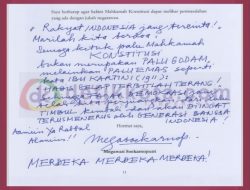 Kami berharap agar hakim Mahkamah Konstitusi dapat melihat permasalahan
yang ada dengan jubah negarawan.
" Rakyat INDONESIA yang tercinta!
Marilah kita berdoa :
Semoga ketuk palu Mahkamah
KONSTITUSI
bukan merupakan PALU GODAM
melainkan PALU EMAS seperti
kata IBU KARTINI (1911):
"HABIS GELAP TERBITLAH TERANG!
DEMOKRASI
TIMBUL KEMBALI dan akan DIINGAT
TERUS MENERUS oleh GENERASI BANGSA
INDONESIA
Aamiin Ya Rabbal
Alamiin!!
Hormat saya,
Megawati Soekarnoputri
MERDEKA. MERDEKA. MERDEKA!